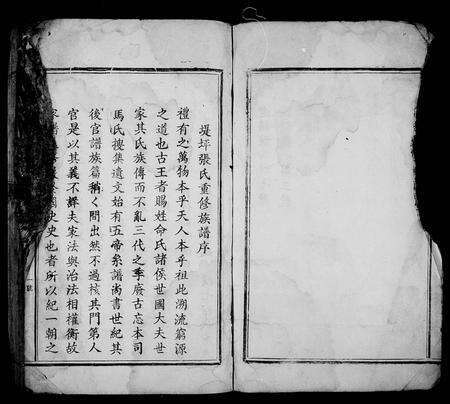 堤坪張氏重修族譜序
禮有之萬物本乎天人本乎祖此溯流窮源
之道也古王者賜姓命氏諸侯世國大夫世
家其氏族傳而不亂三代之季廢古忘本司
馬氏搜集遺文始有五帝系譜尚書世紀其
後官譜族篇稍々間出然不過核其門第人
官是以其義不譁夫宗法與治法相權衡故
家譜國史史也者所以紀一朝之